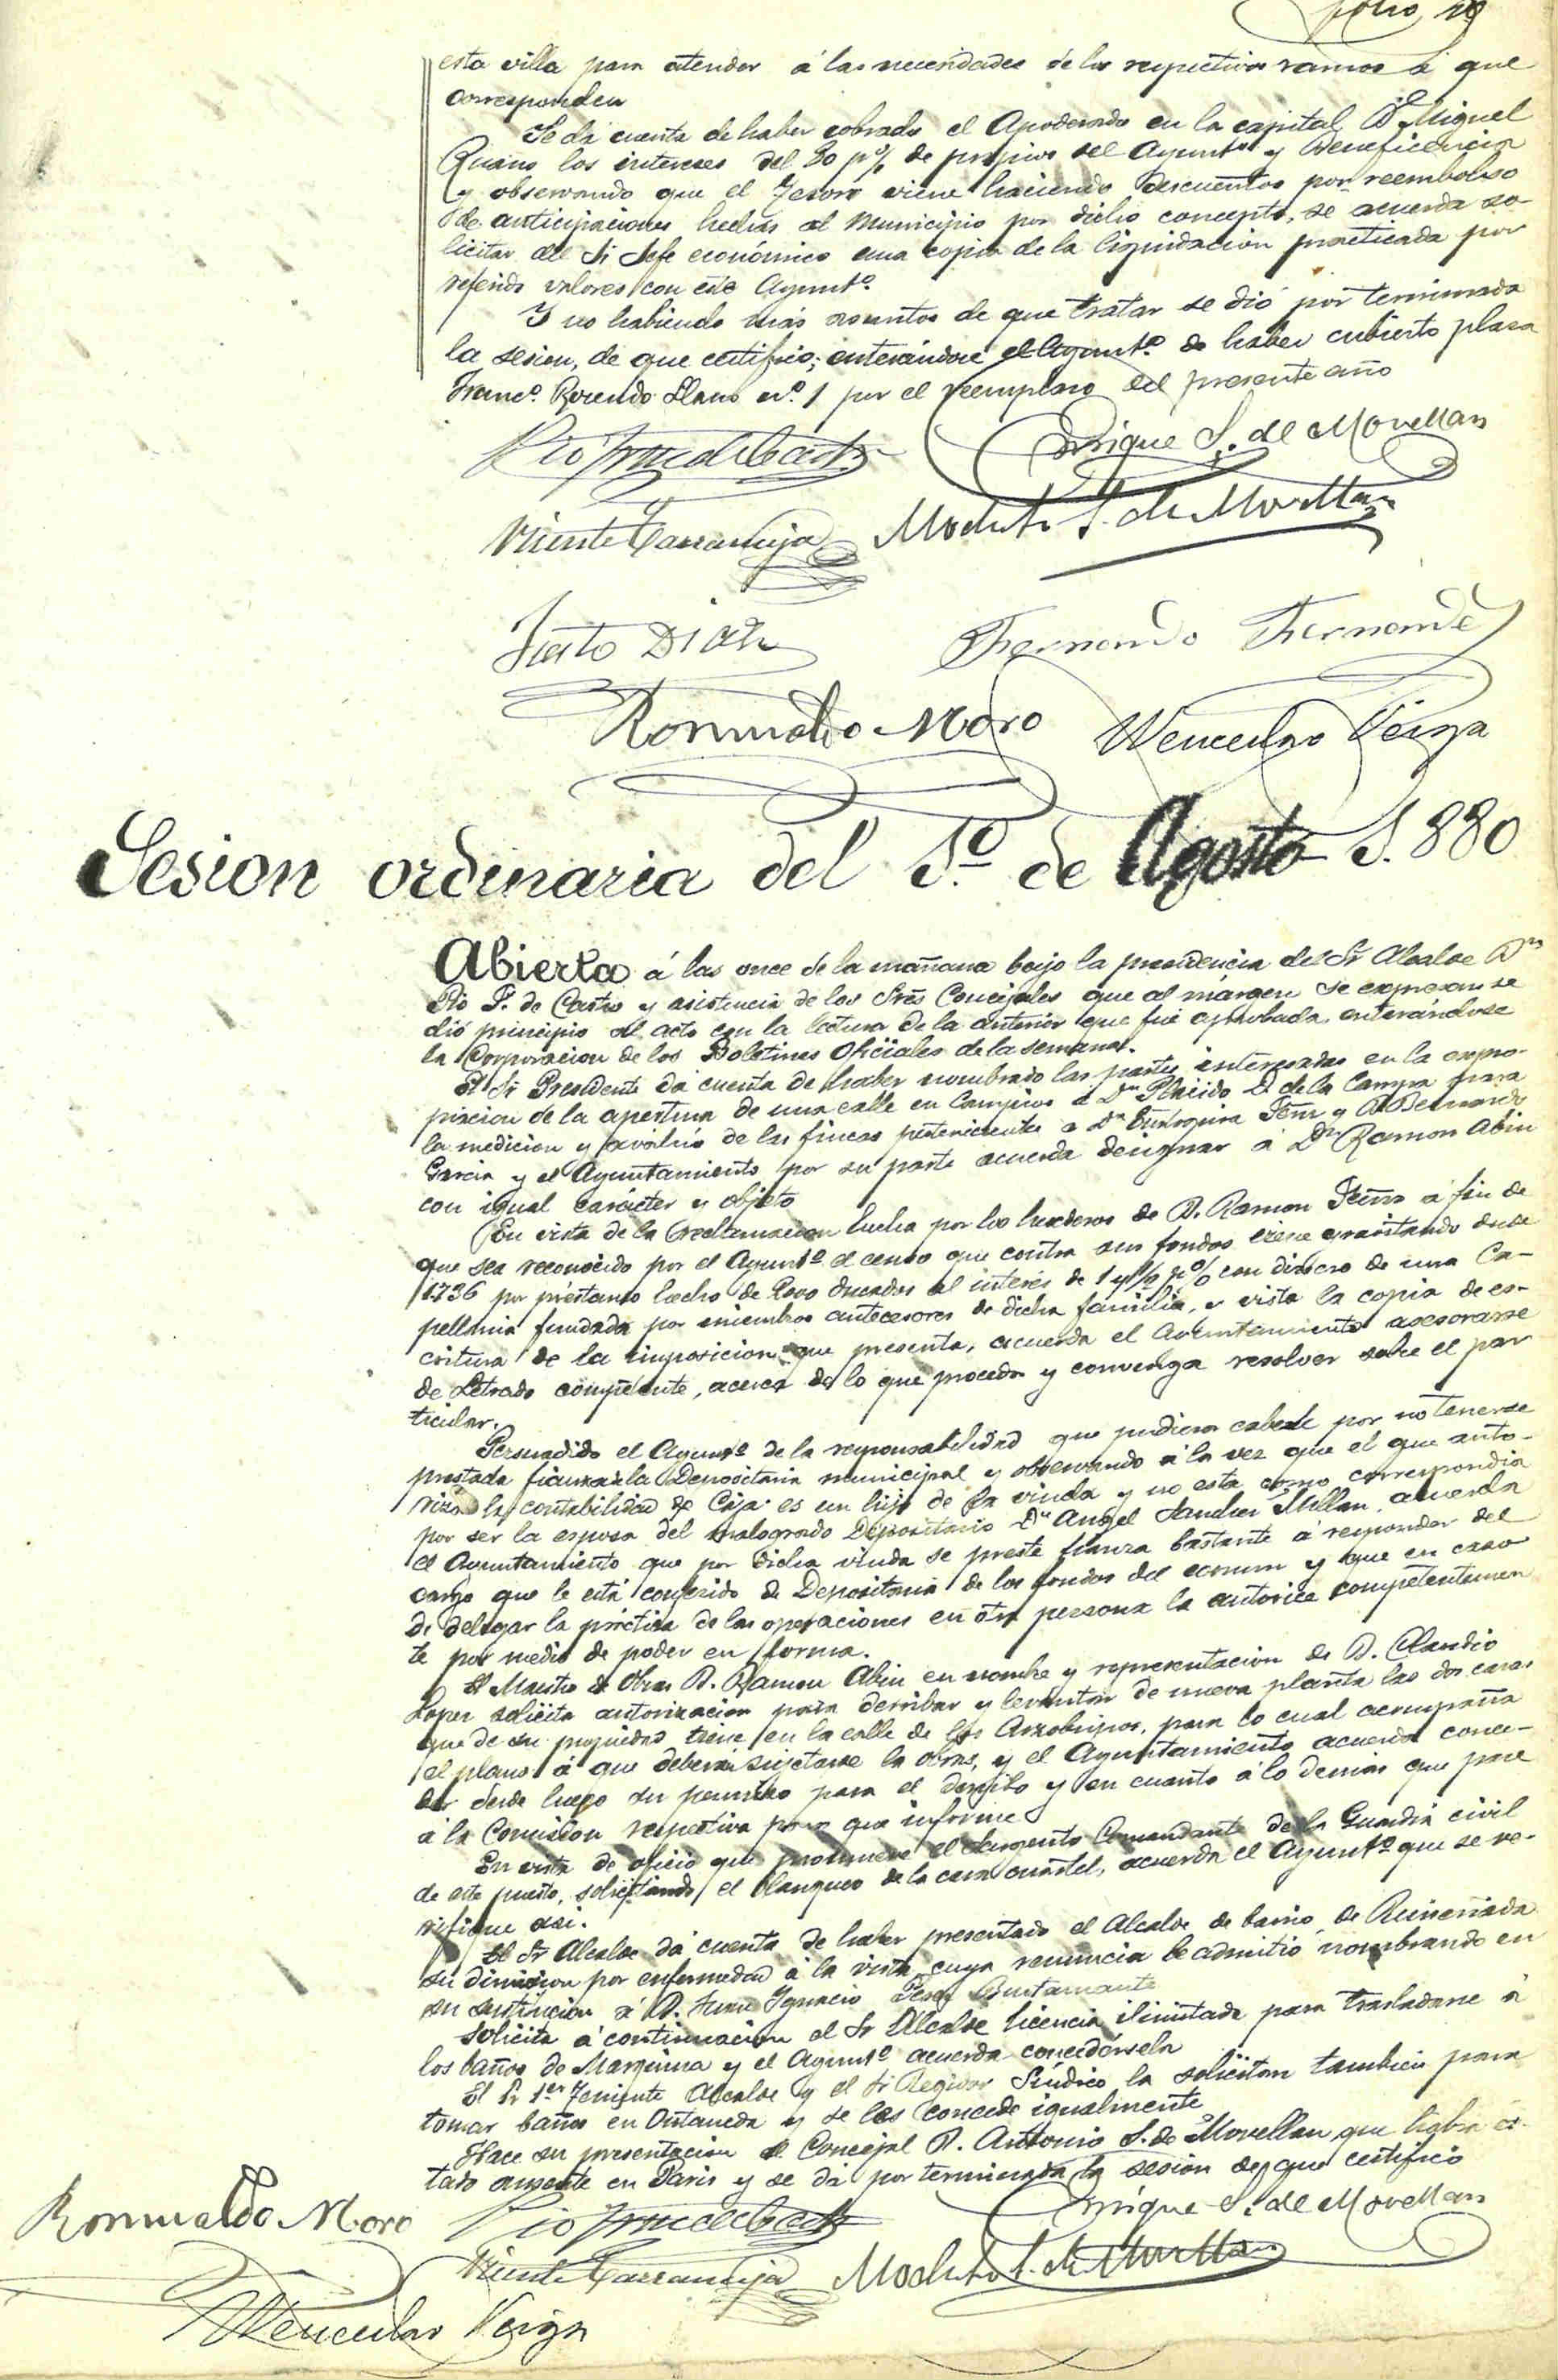 folio 19
esta villa para atender á las necesidades de los respectivos ramos á que
corresponden
Se dá cuenta de haber cobrado el Apoderado en la capital Dn Miguel
Ruano los intereses del 80 p% de propios del Ayuntº y Beneficencia
y observando que el Tesoro viene haciendo descuentos por reembolso
de anticipaciones hechas al Municipio por dicho concepto, se acuerda so-
licitar del Sr Jefe económico una copia de la liquidación practicada por
referidos valores con este Ayuntº.
Y no habiendo más asuntos de que tratar se dió por terminada
la sesion, de que certifico; enterándose el Ayuntº. de haber cubierto plaza
Francº. Rosendo Llano nº. 1 por el reemplazo del presente año
Enrique S. de Movellan
Vicente Carranceja Modesto S. de Movellan
Justo Diaz Fernando Fernandez
Romualdo Moro Wenceslao Veiga
Sesion ordinaria del 1º. de Agosto 1.880
Abierta á las once de la mañana bajo la presidencia del Sr Alcalde Dn
Pio F. de Castro y asistencia de los Sres Concejales que al márgen se expresan se
dió principio al acto con la lectura de la anterior que fué aprobada, enterándose
la Corporacion de los Boletines Oficiales de la semana.
El Sr Presidente dá cuenta de haber nombrado las partes interesadas en la expro-
piacion de la apertura de una calle en Campios á Dn Plácido D. de la Campa para
la medicion y avalúo de las fincas pertenecientes a Dª Eutropia Fern y D. Bernardo
Garcia y el Ayuntamiento por su parte acuerda designar á Dn Ramon Abin
con igual carácter y objeto
En vista de la reclamacion hecha por los herederos de D. Ramon á fin de
que sea reconocido por el Ayuntº el censo que contra sus fondos viene gravitando desde
1736 por préstamo hecho de ducados al interés de 1 y 1/2 p% con dinero de una Ca-
pellania fundada por miembros antecesores de dicha familia, y vista la copia de es-
critura de la imposicion que presenta, acuerda el Ayuntamiento asesorarse
de Letrado competente, acerca de lo que proceda y convenga resolver sobre el par
ticular.
Persuadido el Ayuntº de la responsabilidad que pudiera caberle por no tenerse
prestada fianza la Depositaria municipal y observando á la vez que el que auto-
riza la contabilidad de Caja es un hijo de la viuda y no esta como correspondia
por ser la esposa del malogrado Depositario Dn Angel Sanchez Millan, acuerda
el Ayuntamiento que por dicha viuda se preste fianza bastante á responder del
cargo que le está conferido de Depositaria de los fondos del comun y que en caso
de delegar la práctica de las operaciones en otra persona la autorice competentemen
te por medio de poder en forma.
El Maestro de Obras D. Ramon Abin en nombre y representacion de D. Claudio
Lopez solicita autorizacion para derribar y levantar de nueva planta las dos casas
que de su propiedad tiene en la calle de los Arzobispos, para lo cual acompaña
el plano á que deberá sujetarse la obra, y el Ayuntamiento acuerda conce-
der desde luego su permiso para el derribo y en cuanto á lo demas que pase
á la Comision respectiva para que informe
En vista de oficio que promueve el Sargento Comandante de la Guardia civil
de este puesto, solicitando el blanqueo de la casa cuartel, acuerda el Ayuntº que se ve-
rifique asi.
El Sr Alcalde dá cuenta de haber presentado el Alcalde de barrio de Ruiseñada
su dimision por enfermedad á la vista cuya renuncia le admitió nombrando en
su sustitucion á D. Juan Ignacio Perez Bustamante
Solicita á continuacion el Sr Alcalde licencia ilimitada para trasladarse á
los baños de Marquina y el Ayuntº acuerda concedérsela
El Sr 1er Teniente Alcalde y el Sr Regidor Síndico la solicitan tambien para
tomar baños en Ontaneda y se les concede igualmente
Hace su presentacion el Concejal D. Antonio S. de Movellan que habia es-
tado ausente en Paris y se dá por terminada la sesion de que certifico
Romualdo Moro Enrique S. de Movellan
Vicente Carranceja Modesto S. de Movellan
Wenceslao Veiga